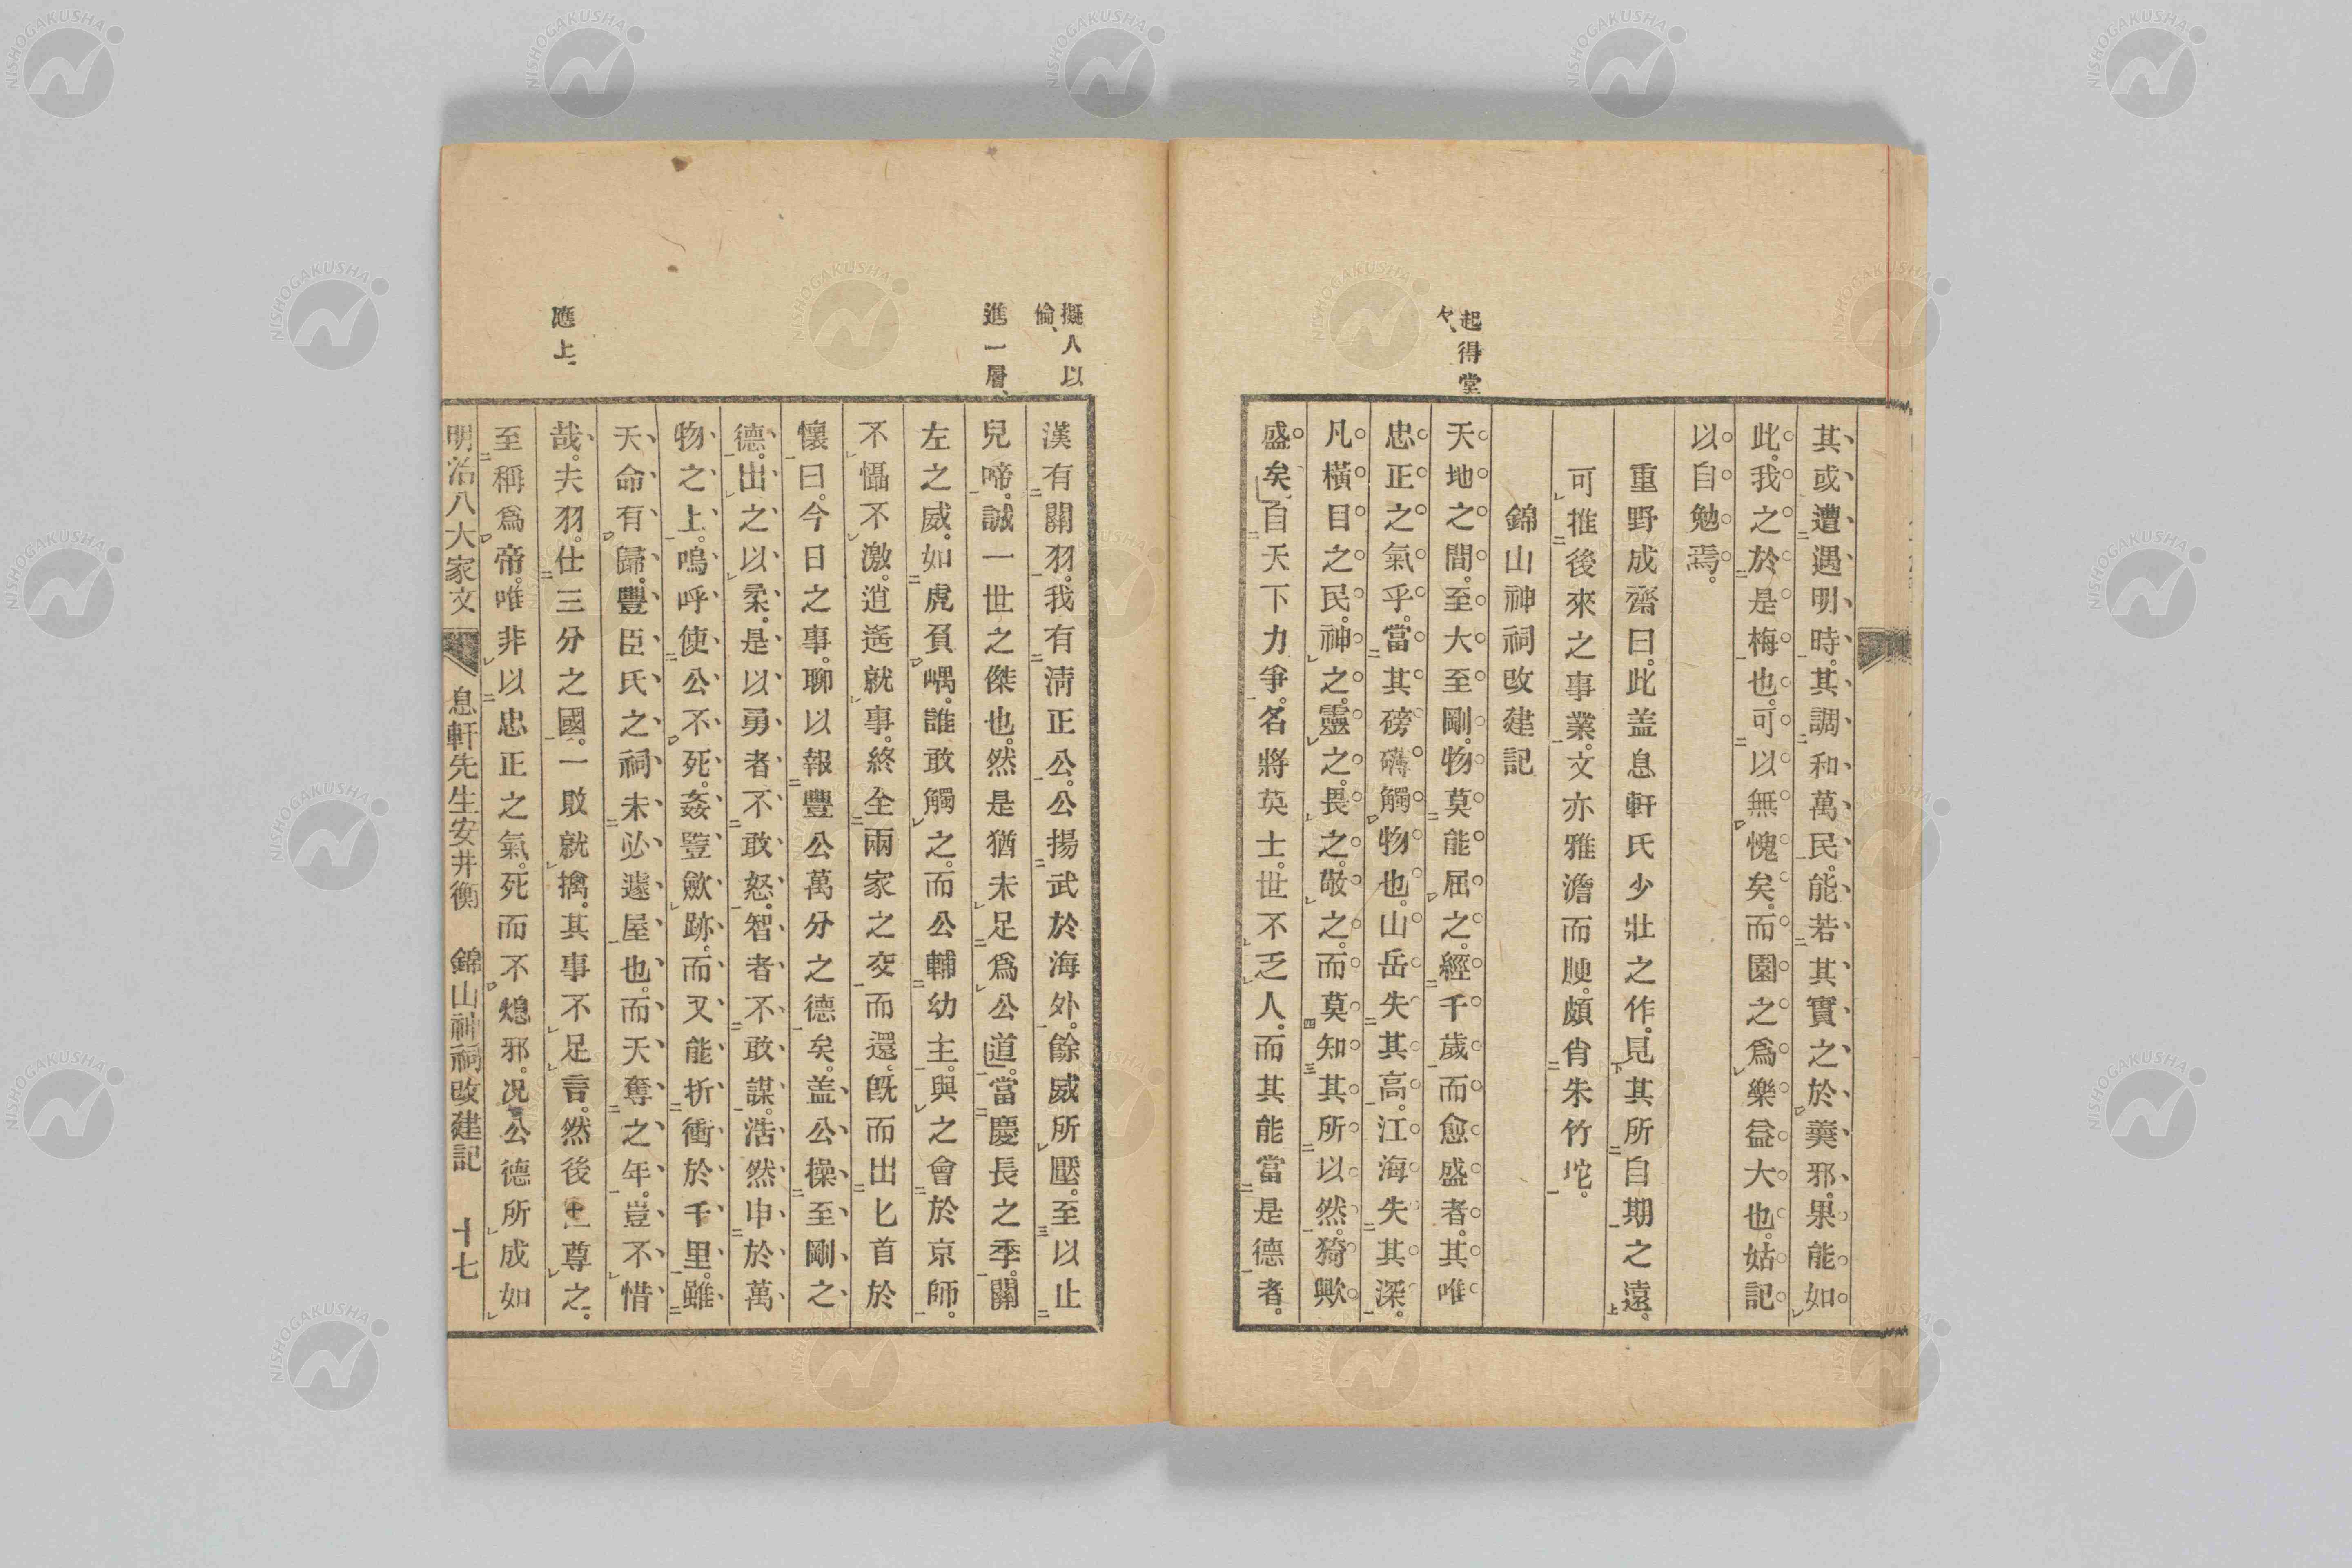 其或遭遇明時。其調和萬民。能若其實之於羹邪。果能如
此。我之於是梅也。可以無愧矣。而園之爲樂益大也。姑記
以自勉焉。
重野成齋曰。此盖息軒氏少壯之作。見其所自期之遠。
可推後來之事業。文亦雅澹而腴。頗肖朱竹坨。
錦山神祠改建記
起得堂
々、
天地之間。至大至剛。物莫能屈之。經千歲而愈盛者。其唯
忠正之氣乎。當其磅礴觸物也。山岳失其高。江海失其深。
凡橫目之民。神之。靈之。畏之。敬之。而莫知其所以然。猗歟
盛矣。自天下力爭。名將英士。世不乏人。而其能當是德者。
擬人以
倫、
漢有關羽。我有淸正公。公揚武於海外。餘威所壓。至以止
進一層、
兒啼。誠一世之傑也。然是猶未足爲公道。當慶長之季。關
左之威。如虎負嵎。誰敢觸之。而公輔幼主。與之會於京師。
不懾不激。逍遙就事。終全兩家之交而還。旣而出匕首於
懷曰。今日之事。聊以報豐公萬分之德矣。盖公操至剛之
德。出之以柔。是以勇者不敢怒。智者不敢謀。浩然申於萬
物之上。嗚呼使公不死。姦豎歛跡。而又能折衝於千里。雖
天命有歸。豐臣氏之祠未必遽屋也。而天奪之年。豈不惜
應上、
哉。夫羽。仕三分之國。一敗就擒。其事不足言。然後世尊之。
至稱爲帝。唯非以忠正之氣。死而不熄邪。况公德所成如
明治八大家文 息軒先生安井衡 錦山神祠改建記 十七
NISHOGAKUSHA